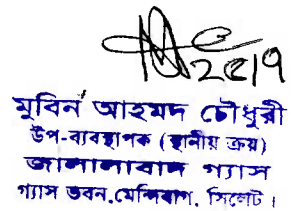 ২৫/৭
মুবিন আহমদ চৌধুরী
উপ-ব্যবস্থাপক (স্থানীয় ক্রয়)
জালালাবাদ গ্যাস
গ্যাস ভবন,মেন্দিবাগ, সিলেট।